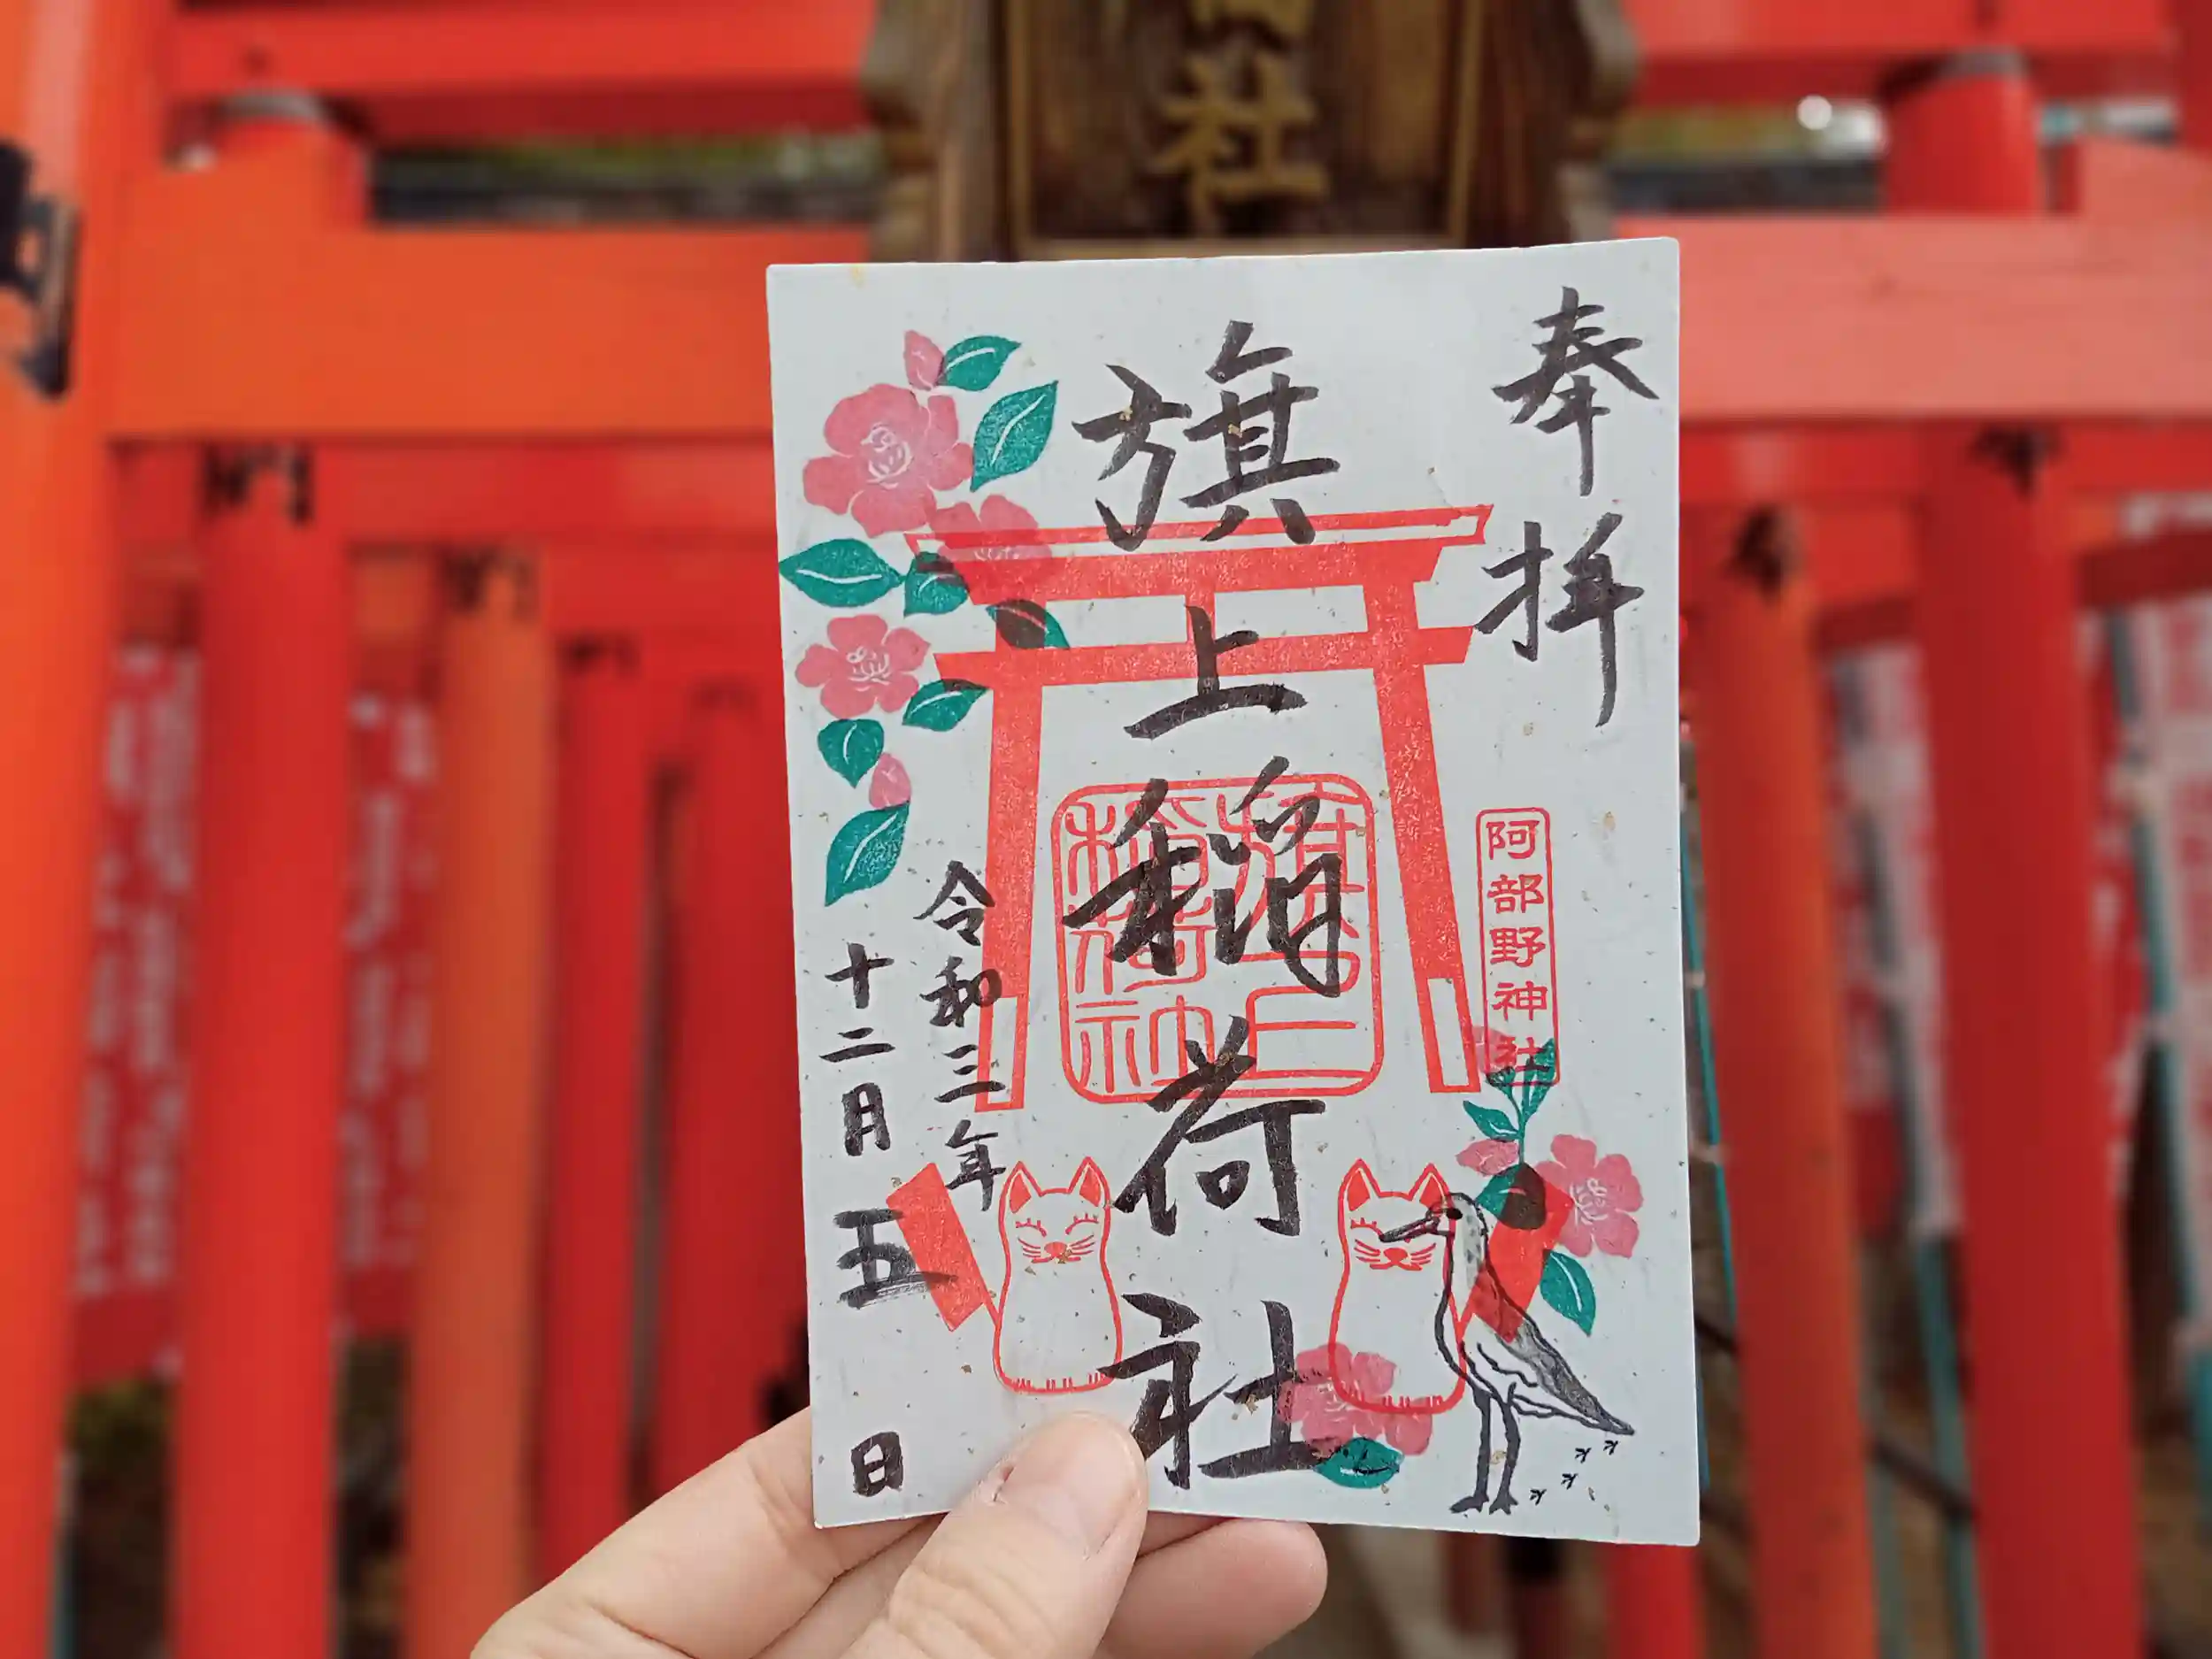 社
奉拝
阿部野神社
旗上稲荷社
旗上
稲荷社
令和三年
十二月五日